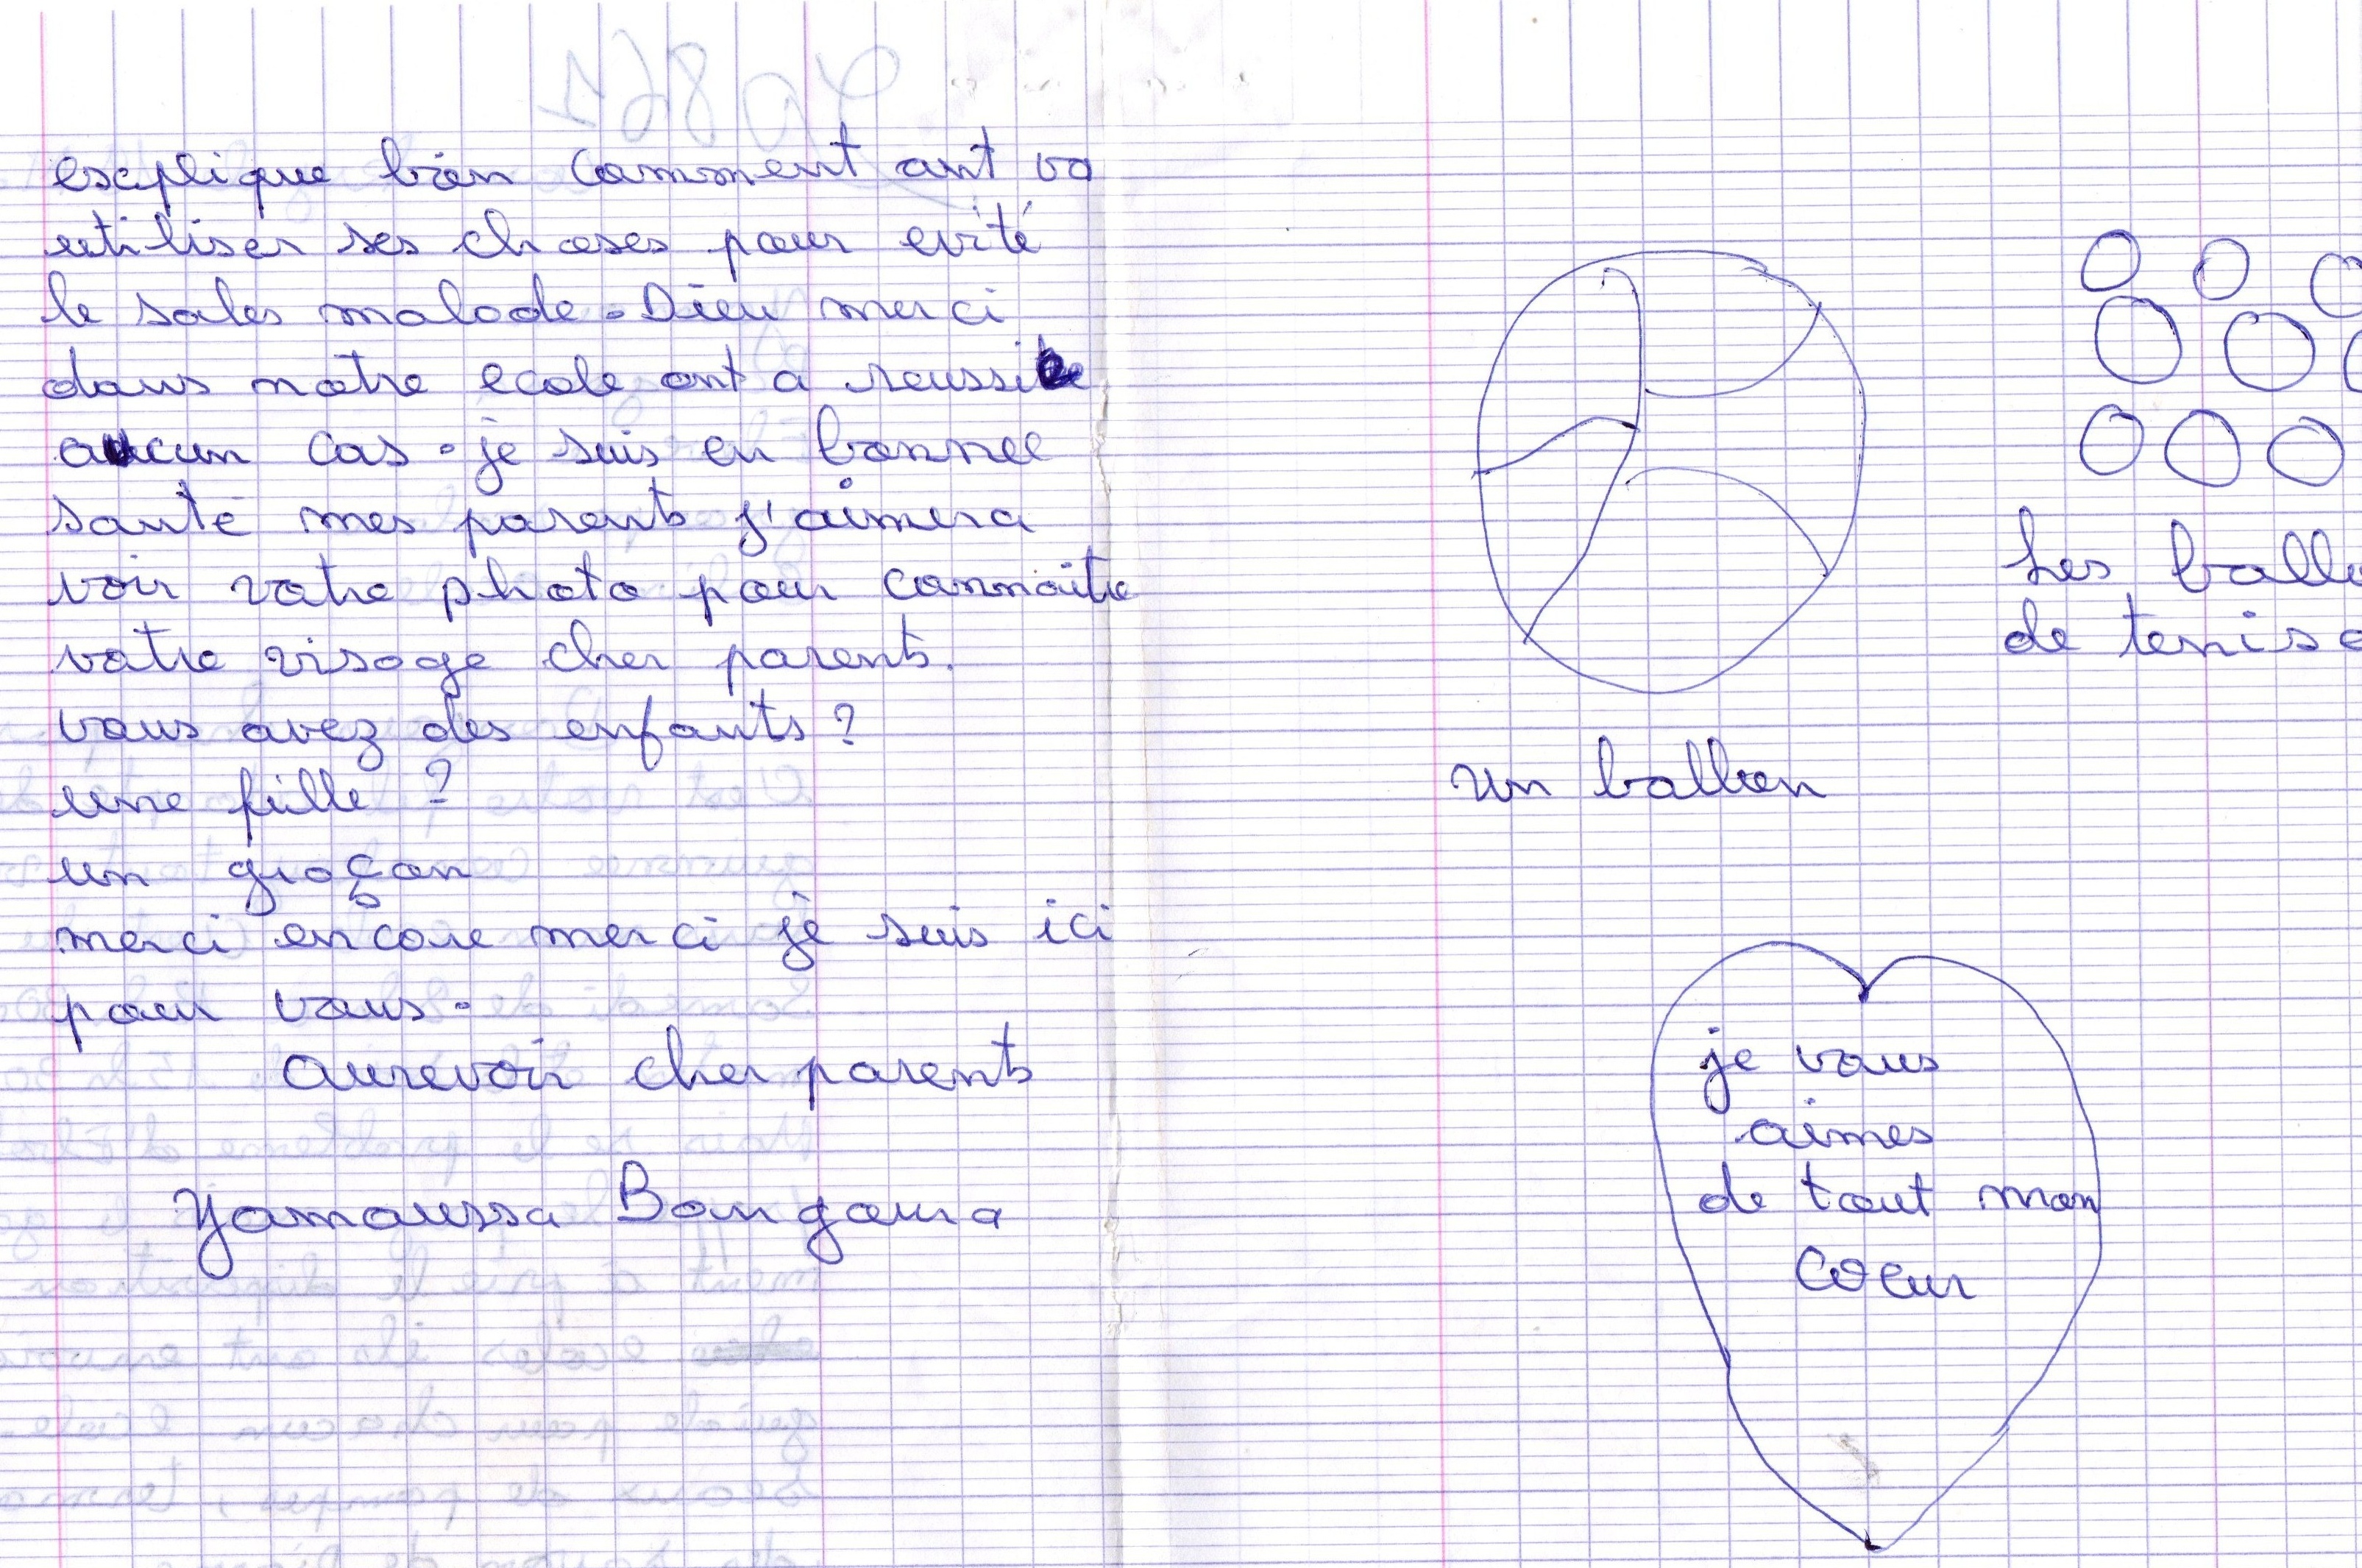 explique bien comment ont va
utiliser ses choses pour evité
le sales malade. Dieu merci
dans notre ecole ont a reussi
aucun cas. je suis en bonnee
santé mes parents j'aimera
voir votre photo pour connaitre
votre visage cher parents.
vous avez des enfants?
une fille ?
un graçon
merci encore merci je suis ici
pour vous.
aurevoir cher parents
Yamoussa Bangoura
un ballon
Les ball
de tenis
je vous
aimes
de tout mon
coeur